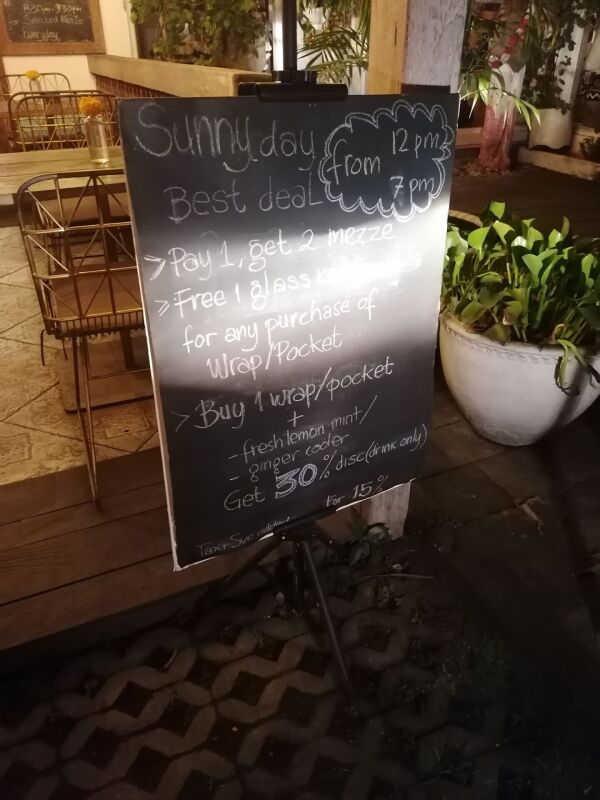 Sunny day
Best deal
from 12 pm
7 pm
> Pay 1, get 2 mezze
> Free 1 glass
for any purchase of
Wrap/Pocket
> Buy 1 wrap/pocket
+
- fresh lemon mint/
- ginger cooler
Get 30% disc (drink only)
For 15%
Tax + Svc
for Selected Mezze
Everyday